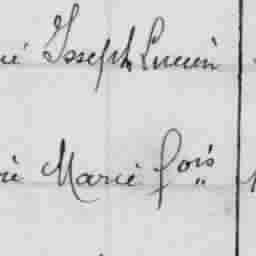 né Joseph Lucien
ré Marie fois